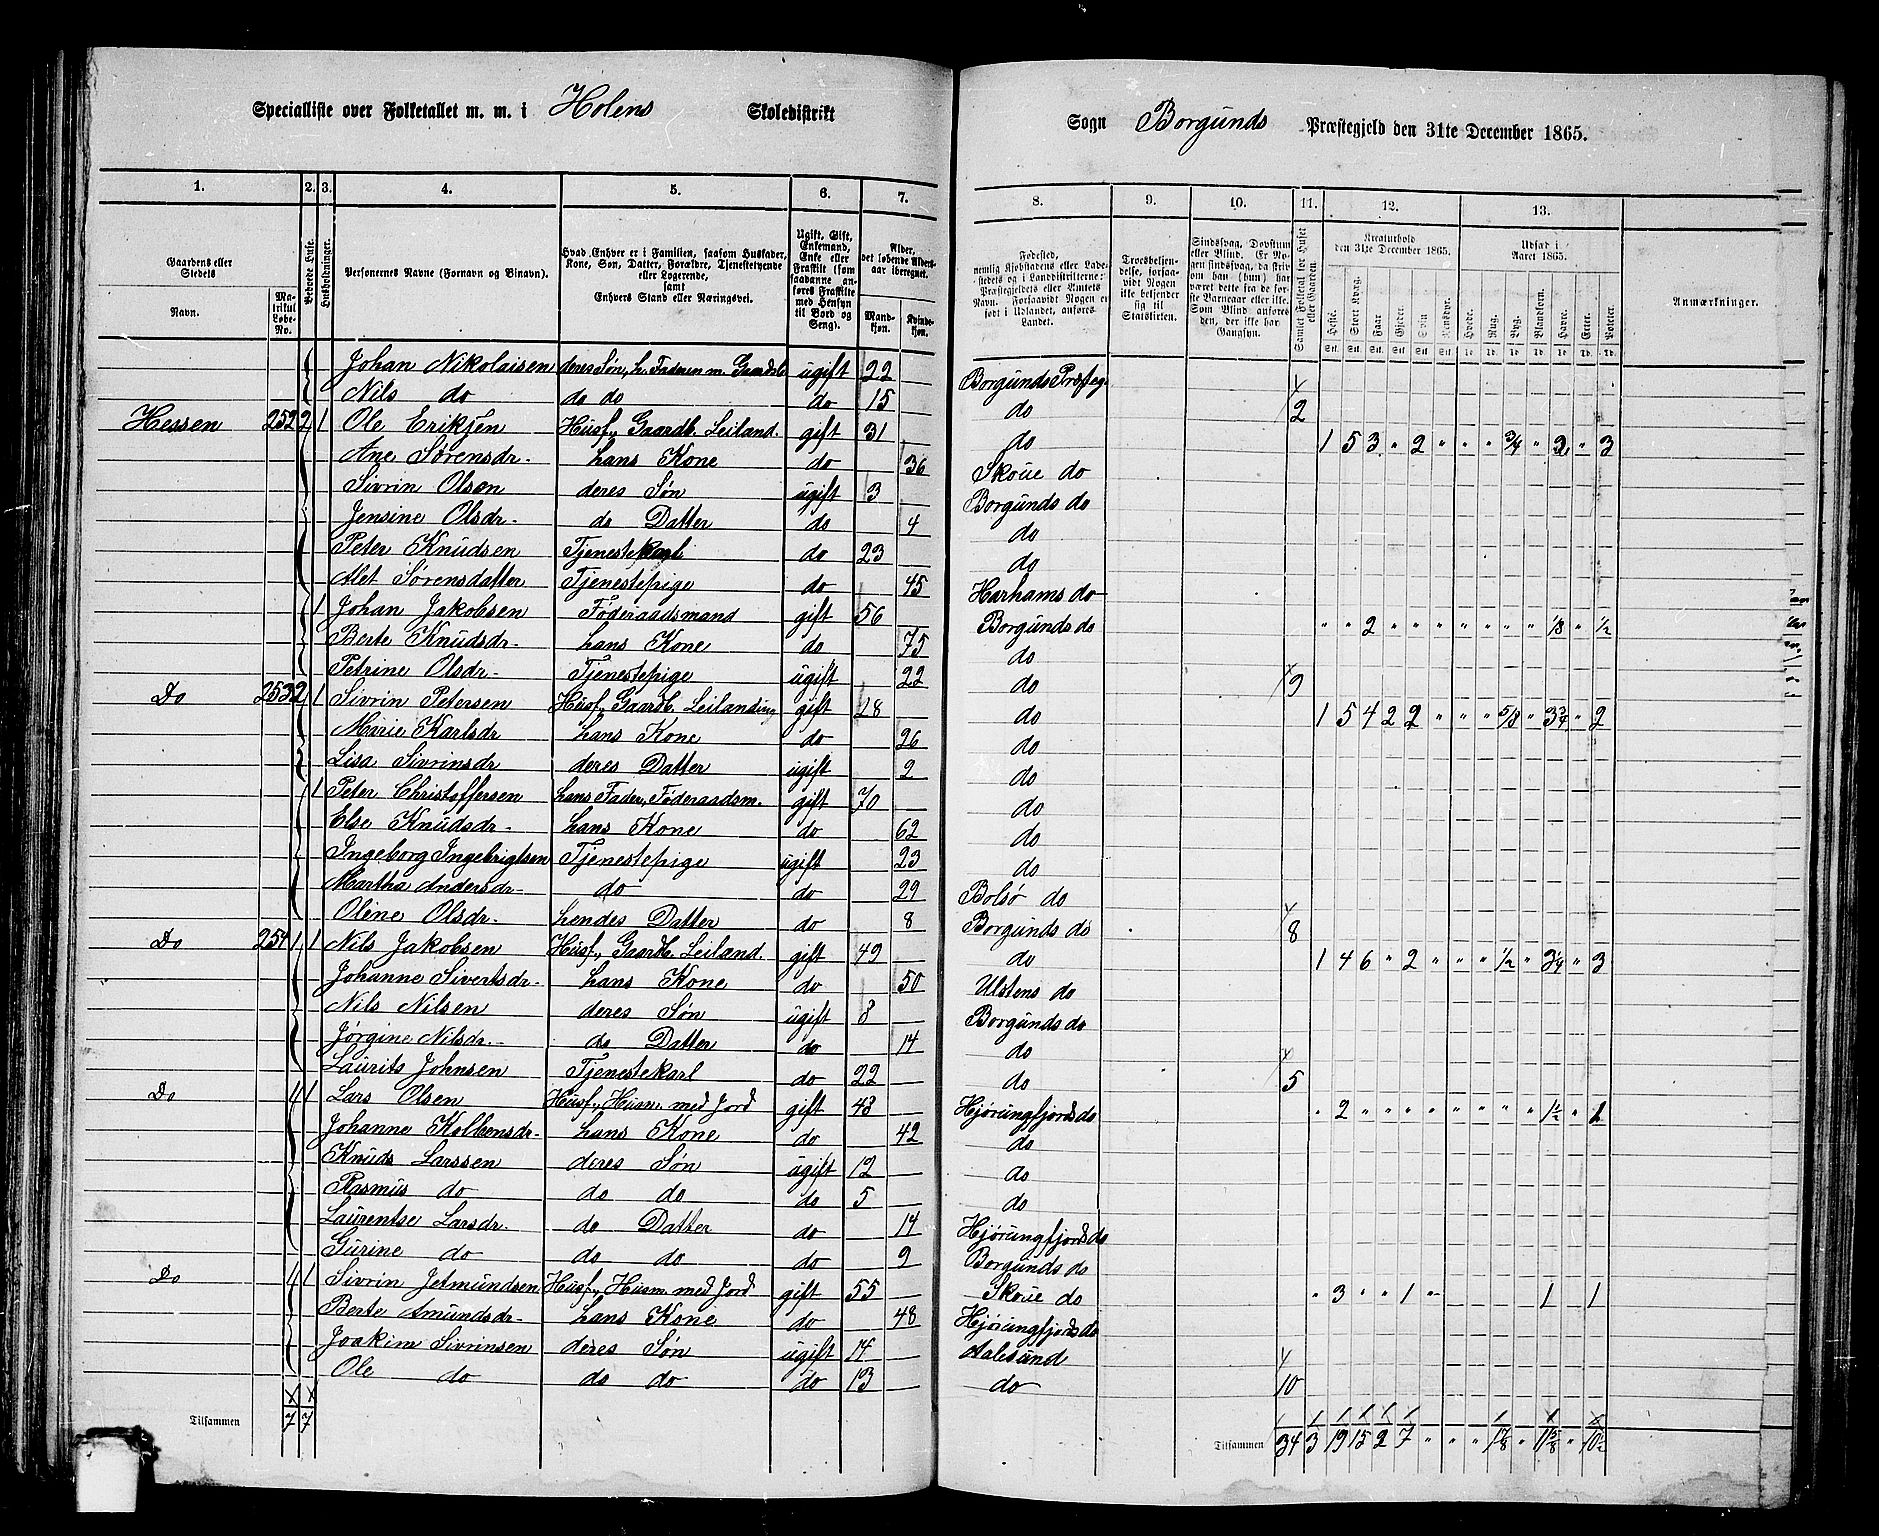 Specialliste over Folketallet m. m. i Holens Skoledistrikt
Sogn Borgunds Præstegjeld den 31te December 1865.
1. 2. 3. 4. 5. 6. 7. 8. 9. 10. 11. 12. 13.
Gaardens eller Stedets Navn. Matrikul Løbe-No. Beboede Huse. Husholdninger. Personernes Navne (Fornavn og Binavn). Hvad Enhver er i Familien, saasom Husfader, Kone, Søn, Datter, Forældre, Tjenestetyende eller Logerende, samt Enhvers Stand eller Næringsvei. Ugift, Gift, Enkemand, Enke eller Fraskilt (som saadanne anføres Fraskilte med Hensyn til Bord og Seng). Alder, det løbende Aldersaar iberegnet. Mandkjøn. Kvindekjøn.
Fødested, nemlig Kjøbstadens eller Ladestedets og i Landdistrikterne: Præstegjeldets eller Amtets Navn. Forsaavidt Nogen er født i Udlandet, anføres Landet. Troesbekjendelse, forsaavidt Nogen ikke bekjender sig til Statskirken. Sindssvag, Døvstum eller Blind. Samlet Folketal for Huset eller Gaarden. Kreaturhold den 31te December 1865. Heste. Stort Kvæg. Faar. Gjeder. Svin. Rensdyr. Udsæd i Aaret 1865. Hvede. Rug. Byg. Blandkorn. Havre. Erter. Poteter. Anmærkninger.
Johan Nikolaisen deres Søn, h. Faderen m. Gaardsb ugift 22 Borgunds Præsteg.
Nils do do do do 15 do 2
Hessen 252 2 1 Ole Eriksen Husf., Gaardb. Leiland. gift 31 do 1 5 3 " 2 " " " 3/4 " 2 " 3
Ane Sørensdr. hans Kone do 36 Skoue do
Sivrin Olsen deres Søn ugift 3 Borgunds do
Jensine Olsdr. do Datter do 4 do
Peter Knudsen Tjenestekarl do 23 do
Alet Sørensdatter Tjenestepige do 45 Harhams do
1 Johan Jakobsen Føderaadsmand gift 56 Borgunds do " " 2 " " " " " " " 1/8 " 1/2
Berte Knudsdr. hans Kone do 75 do
Petrine Olsdr. Tjenestepige ugift 22 do 9
Do 253 2 1 Sivrin Petersen Husf., Gaardb. Leilanding gift 28 do 1 5 4 2 2 " " " 5/8 " 3 3/4 " 2
Marie Karlsdr hans Kone do 26 do
Lisa Sivrinsdr deres Datter ugift 2 do
1 Peter Christoffersen hans Fader, Føderaadsm. gift 70 do
Else Knudsdr. hans Kone do 62 do
Ingeborg Ingebrigtsen Tjenestepige ugift 23 do
Martha Andersdr. do do 29 Bolsø do
Oline Olsdr. hendes Datter do 8 Borgunds do 8
Do 254 1 1 Nils Jakobsen Husf., Gaardb. Leiland. gift 49 do 1 4 6 " 2 " " " 1/2 " 3 1/4 " 3
Johanne Sivertsdr. hans Kone do 50 Ulstens do
Nils Nilsen deres Søn ugift 8 Borgunds do
Jørgine Nilsdr. do Datter do 14 do
Laurits Johnsen Tjenestekarl do 22 do 5
Do 1 1 Lars Olsen Husf., Husm. med Jord gift 43 Hjørungfjords do " 2 " " " " " " " " 1 1/2 " 1
Johanne Kolbensdr. hans Kone do 42 do
Knuds Larssen deres Søn ugift 12 do
Rasmus do do do do 5 do
Laurentse Larsdr. do Datter do 14 Hjørungfjords do
Gurine do do do do 9 Borgunds do
Do 1 1 Sivrin Jetmundsen Husf., Husm. med Jord gift 55 Skoue do " 3 " " 1 " 1 1
Berte Amundsdr. hans Kone do 48 Hjørungfjords do
Joakim Sivrinsen deres Søn ugift 14 Aalesund
Ole do do do do 13 do 10
Tilsammen 7 7
Tilsammen 34 3 19 15 2 7 " " " 1 7/8 " 11 5/8 " 10 1/2